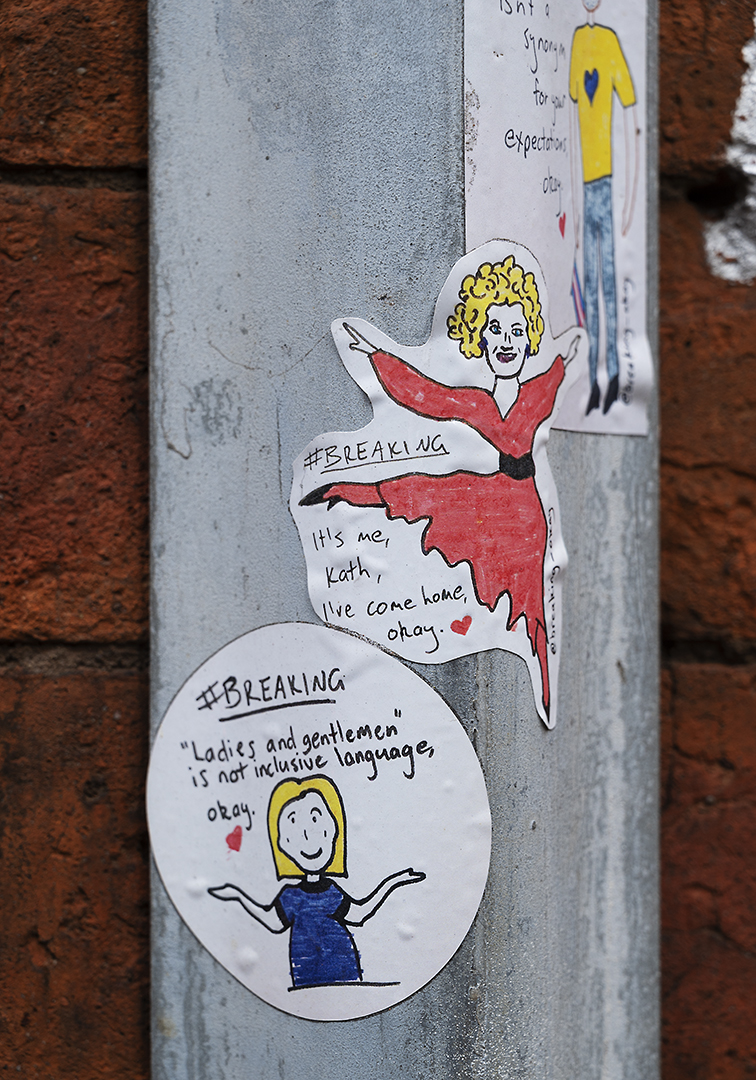 isnt a
synonym
for your
expectations,
okay.
#BREAKING
It's me,
Kath,
I've come home,
okay.
@breaking_okay
#BREAKING
"Ladies and gentlemen"
is not inclusive language,
okay.